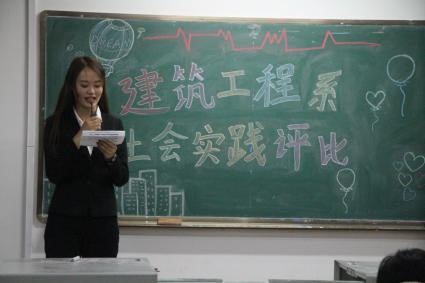 DREAM
建筑工程系
社会实践评比